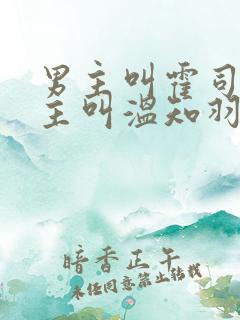 男主叫霍司
主叫温知羽
暗香正午
未经同意禁止转载